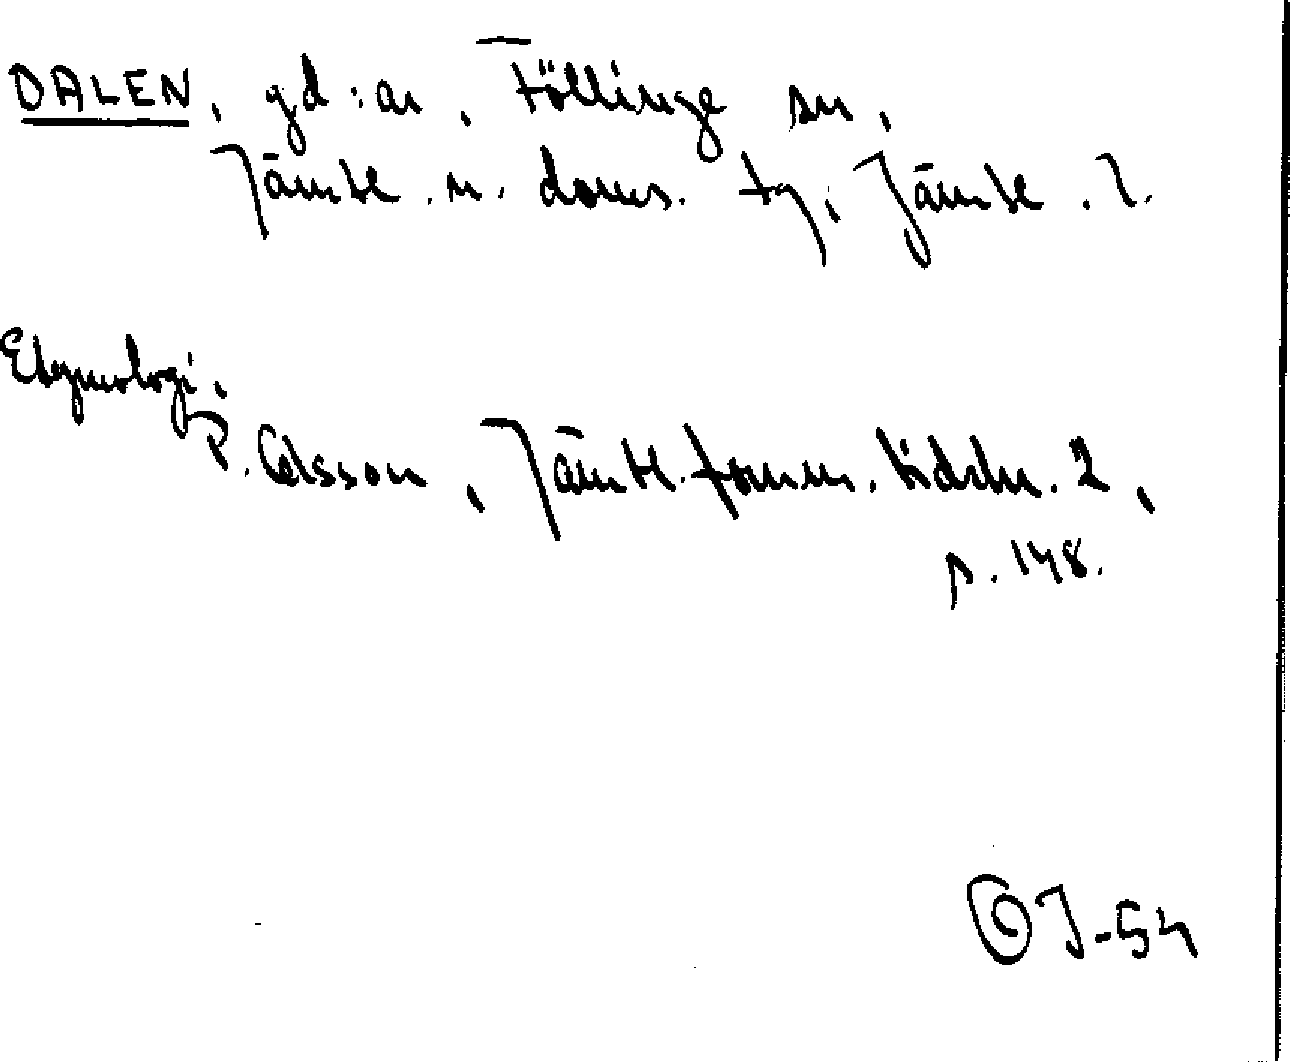 DALEN, gd:ar, Föllinge sn,
Jämtl. n. doms. tg, Jämtl. l.
Etymologi:
P. Olsson, Jämtl. fornm. tidskr. 2,
p. 148.
OJ-54